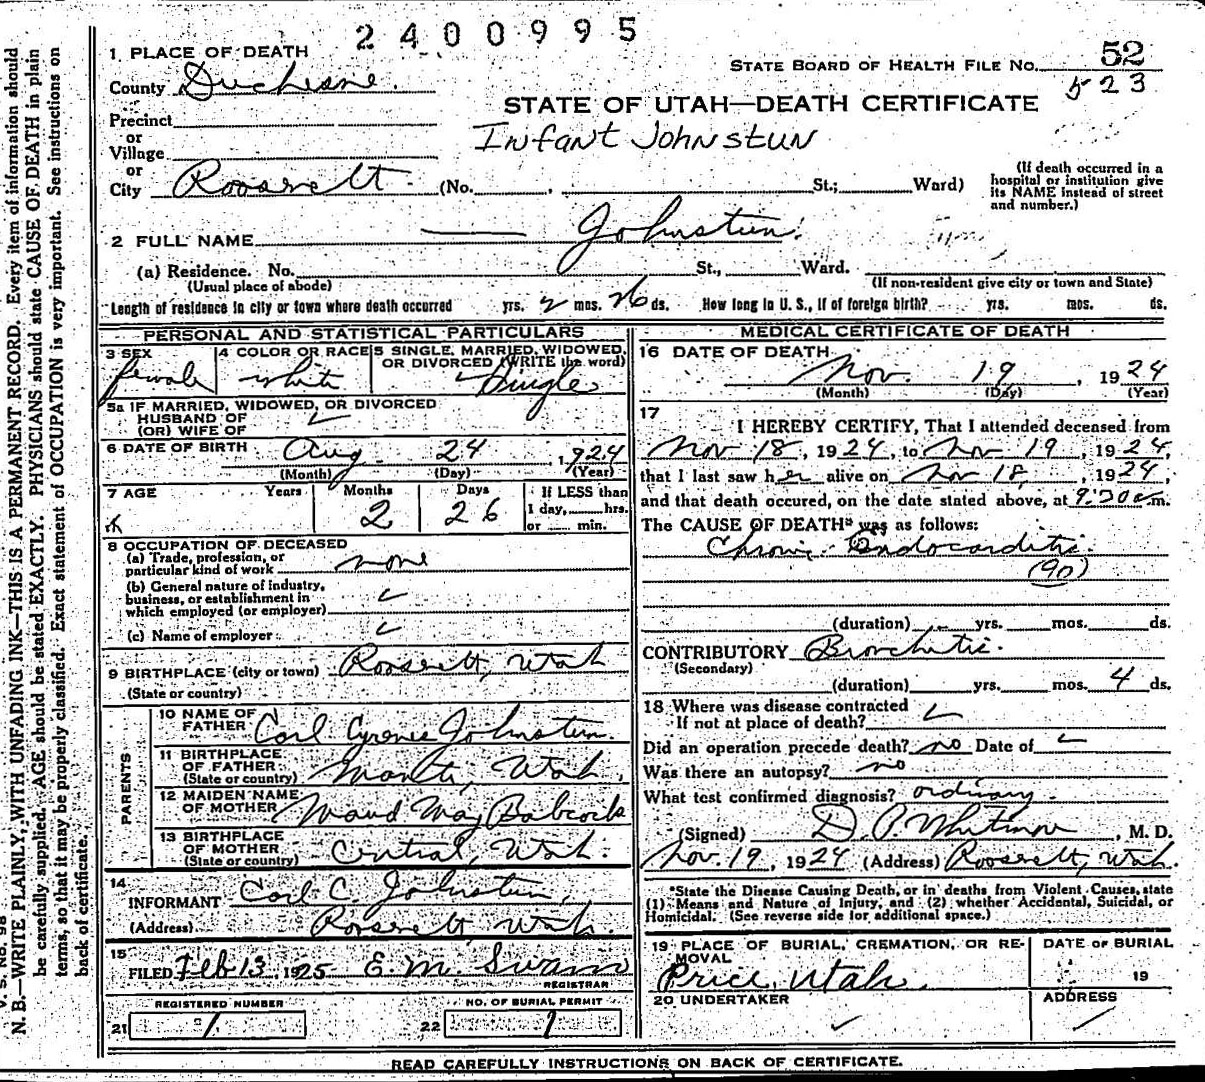 2400995
1 PLACE OF DEATH
STATE BOARD OF HEALTH FILE NO. 52
523
County Duchesne.
STATE OF UTAH—DEATH CERTIFICATE
Precinct
or
Village
Infant Johnstun
or
City Roosevelt (No. , St.; Ward)
(If death occurred in a hospital or institution give its NAME instead of street and number.)
2 FULL NAME — Johnstun.
(a) Residence. No. St., Ward.
(Usual place of abode) (If non-resident give city or town and State)
Length of residence in city or town where death occurred yrs. 2 mos. 26 ds. How long in U. S., if of foreign birth? yrs. mos. ds.
PERSONAL AND STATISTICAL PARTICULARS
3 SEX
female
4 COLOR OR RACE
white
5 SINGLE, MARRIED, WIDOWED, OR DIVORCED (WRITE the word)
Single
5a IF MARRIED, WIDOWED, OR DIVORCED
HUSBAND OF
(OR) WIFE OF
6 DATE OF BIRTH Aug. 24, 1924
(Month) (Day) (Year)
7 AGE Years Months Days
2 26
If LESS than
1 day, hrs.
or min.
8 OCCUPATION OF DECEASED
(a) Trade, profession, or
particular kind of work none
(b) General nature of industry,
business, or establishment in
which employed (or employer)
(c) Name of employer
9 BIRTHPLACE (city or town) Roosevelt, Utah
(State or country)
PARENTS
10 NAME OF FATHER Carl Cyrenes Johnstun.
11 BIRTHPLACE OF FATHER Manti, Utah.
(State or country)
12 MAIDEN NAME OF MOTHER Maud May Babcock
13 BIRTHPLACE OF MOTHER Central, Utah.
(State or country)
14
INFORMANT Carl C. Johnstun,
(Address) Roosevelt, Utah.
15
FILED Feb 13, 1925 E. M. Swain
REGISTRAR
REGISTERED NUMBER
21 1
NO. OF BURIAL PERMIT
22 1
MEDICAL CERTIFICATE OF DEATH
16 DATE OF DEATH
Nov. 19, 1924
(Month) (Day) (Year)
17
I HEREBY CERTIFY, That I attended deceased from
Nov 18, 1924, to Nov 19, 1924,
that I last saw her alive on Nov 18, 1924,
and that death occured, on the date stated above, at 9:30 a.m.
The CAUSE OF DEATH* was as follows:
Chronic Endocarditis.
(90)
(duration) yrs. mos. ds.
CONTRIBUTORY Bronchitis.
(Secondary)
(duration) yrs. mos. 4 ds.
18 Where was disease contracted
If not at place of death?
Did an operation precede death? no Date of
Was there an autopsy? no
What test confirmed diagnosis? ordinary.
(Signed) D. P. Whitmore, M. D.
Nov. 19, 1924 (Address) Roosevelt, Utah.
*State the Disease Causing Death, or in deaths from Violent Causes, state
(1) Means and Nature of Injury, and (2) whether Accidental, Suicidal, or
Homicidal. (See reverse side for additional space.)
19 PLACE OF BURIAL, CREMATION, OR REMOVAL
Price, Utah.
DATE OF BURIAL
19
20 UNDERTAKER
ADDRESS
READ CAREFULLY INSTRUCTIONS ON BACK OF CERTIFICATE.
V. S. No. 98
N. B.—WRITE PLAINLY, WITH UNFADING INK—THIS IS A PERMANENT RECORD. Every item of information should
be carefully supplied. AGE should be stated EXACTLY. PHYSICIANS should state CAUSE OF DEATH in plain
terms, so that it may be properly classified. Exact statement of OCCUPATION is very important. See instructions on
back of certificate.